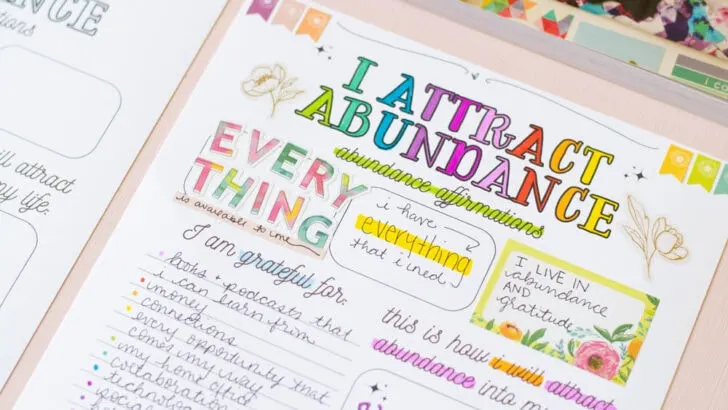 ANCE
I ATTRACT
ABUNDANCE
abundance affirmations
EVERY
THING
is available to me
i have
everything
that i need
I LIVE IN
abundance
AND
gratitude
I am grateful for:
books + podcasts that
i can learn from
money
connections
every opportunity that
comes my way
my home office
collaboration
technology
social
this is how i will attract
abundance into my
will attract
my life.